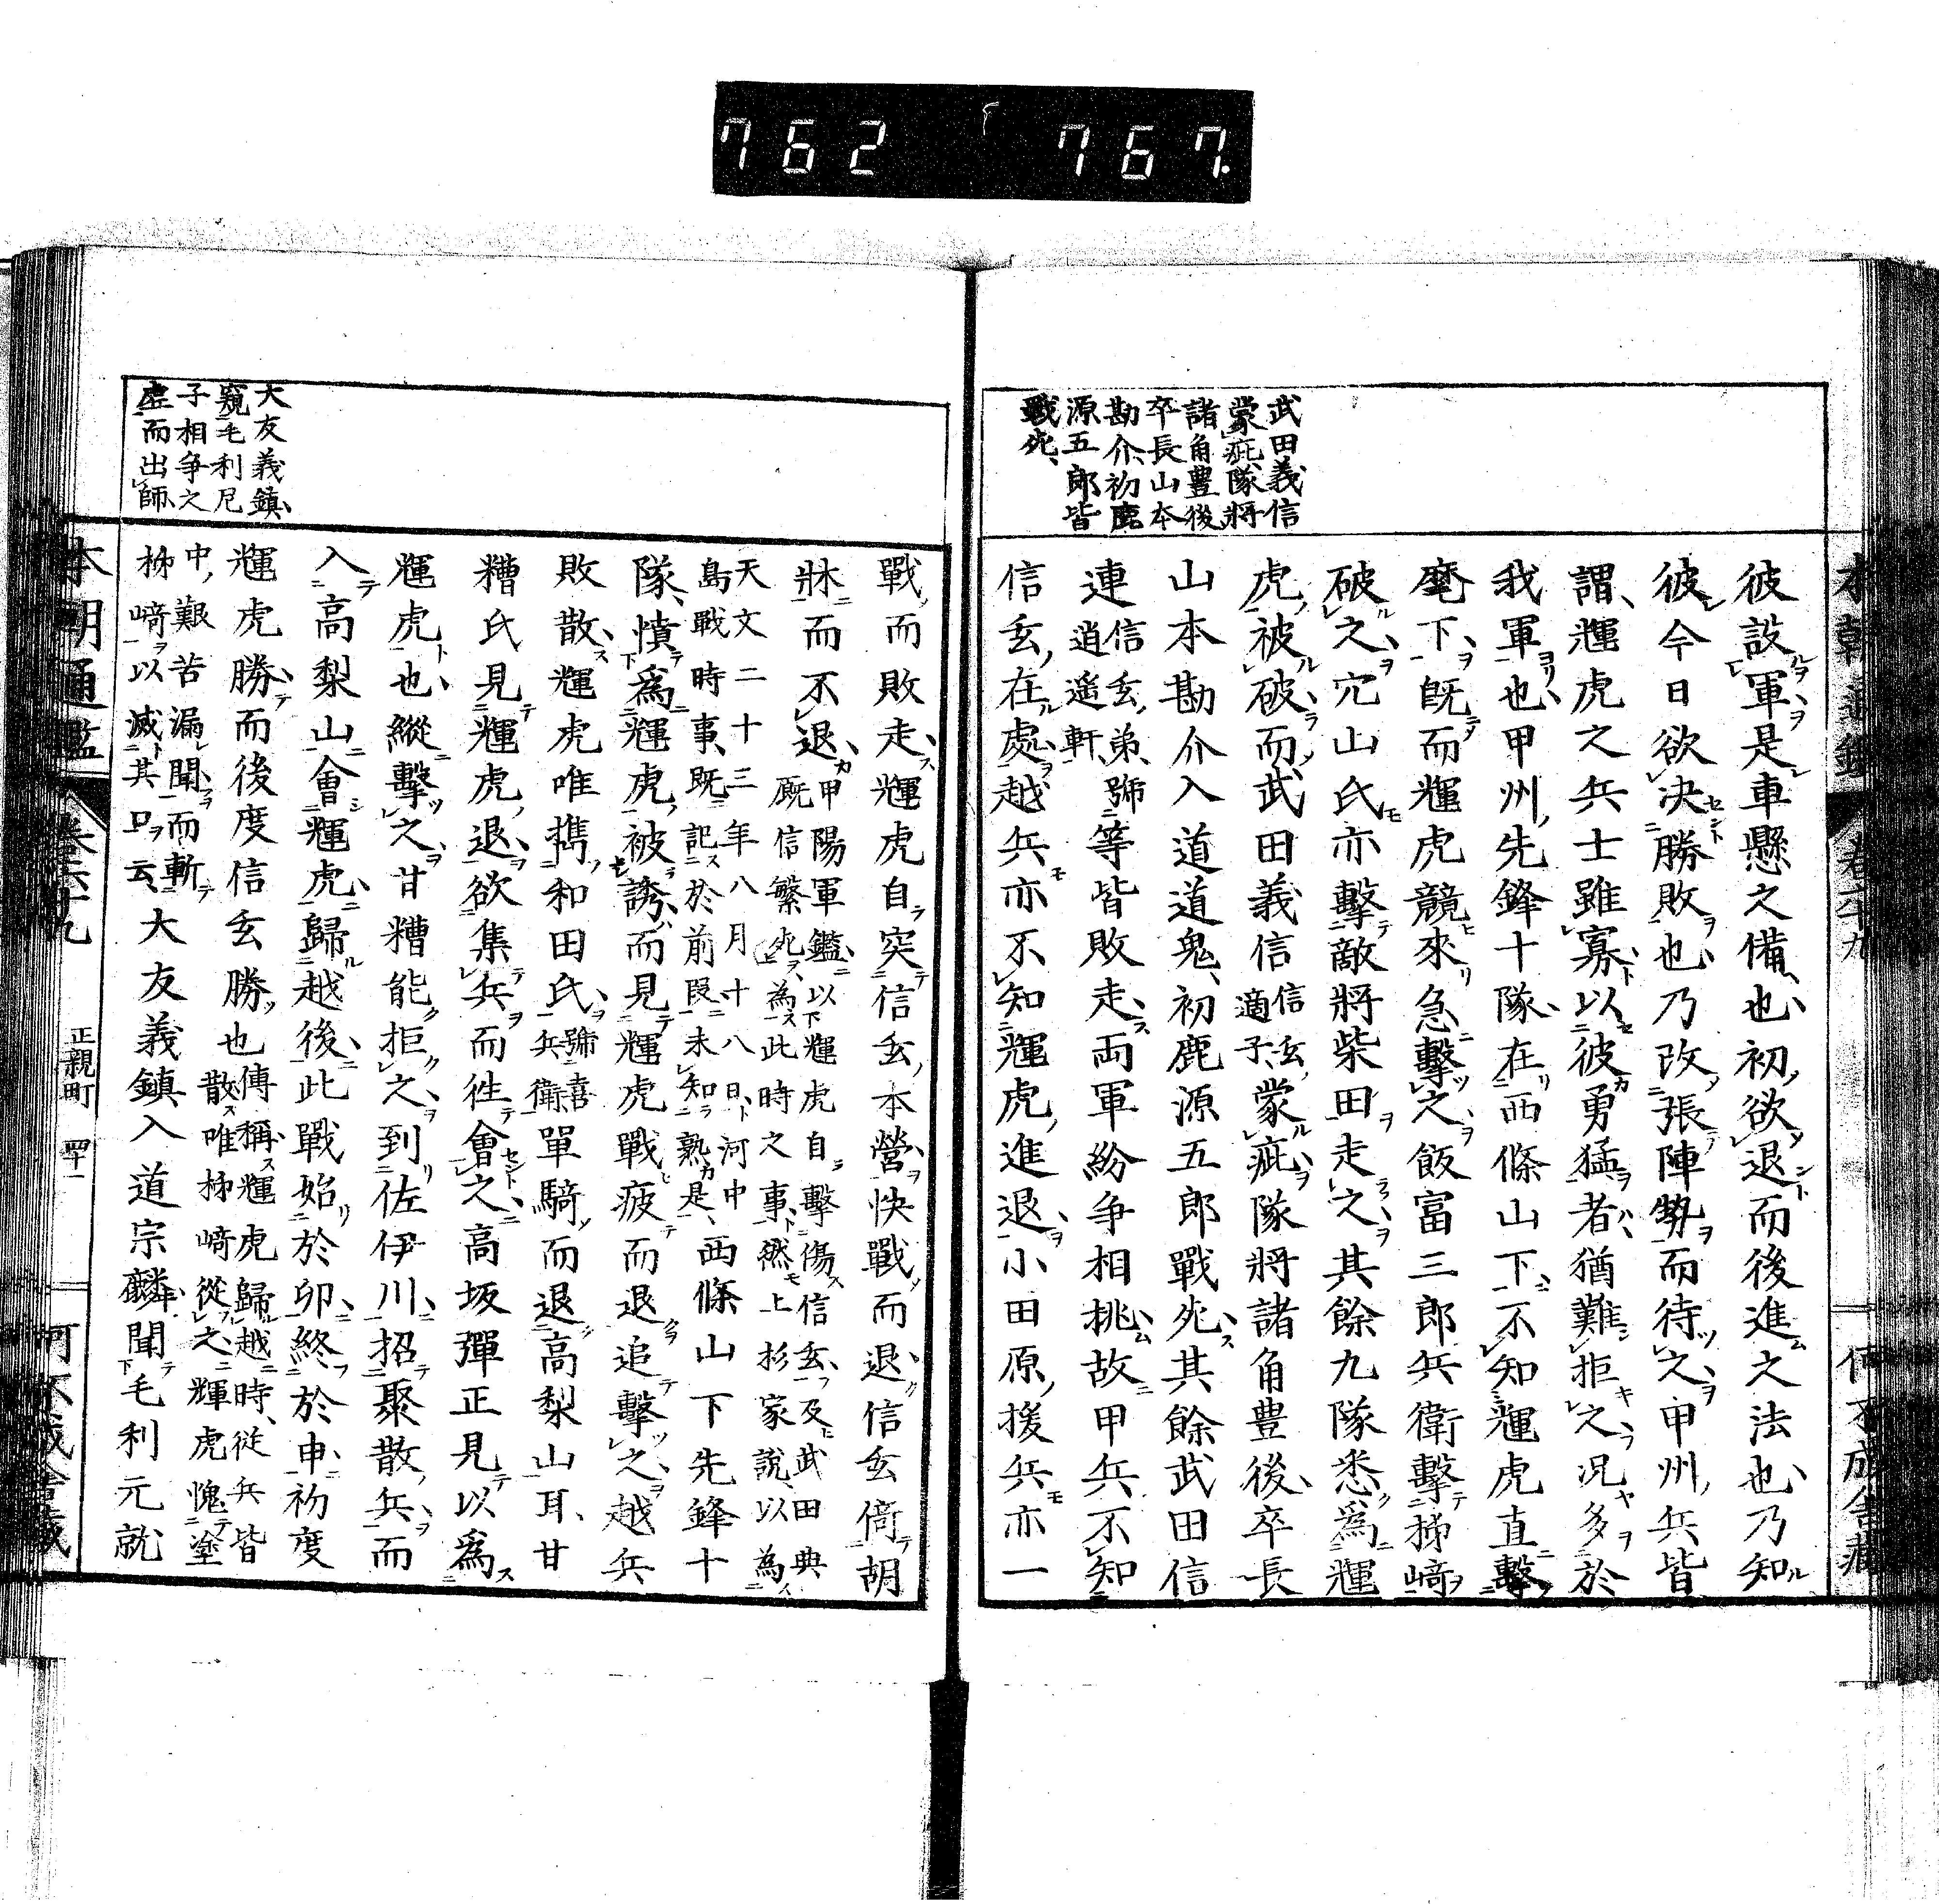 762 767.
武田義信
蒙疵隊將
諸角豊後
卒長山本
勘介初鹿
源五郎皆
戰死
彼設軍是車懸之備也初欲退而後進之法也乃知
彼今日欲決勝敗也乃改張陣勢而待之甲州兵皆
謂輝虎之兵士雖寡以彼勇猛者猶難拒之况多於
我軍也甲州先鋒十隊在西條山下不知輝虎直擊
麾下既而輝虎競來急擊之飯富三郎兵衛擊㭰﨑
破之穴山氏亦擊敵將柴田走之其餘九隊悉爲輝
虎被破而武田義信信玄適子蒙疵隊將諸角豊後卒長
山本勘介入道道鬼初鹿源五郎戰死其餘武田信
連信玄弟號逍遥軒等皆敗走両軍紛争相挑故甲兵不知
信玄在處越兵亦不知輝虎進退小田原援兵亦一
戰而敗走輝虎自突信玄本營快戰而退信玄倚胡
牀而不退甲陽軍鑑以下輝虎自擊傷信玄及武田典厩信繁死爲此時之事然上杉家說以為
天文二十三年八月十八日河中島戰時事既記於前段未知熟是西條山下先鋒十
隊憤爲輝虎被誘而見輝虎戰疲而退追擊之越兵
敗散輝虎唯携和田氏號喜兵衛單騎而退高梨山耳甘
糟氏見輝虎退欲集兵而徃會之高坂彈正見以爲
輝虎也縱擊之甘糟能拒之到佐伊川招聚散兵而
入高梨山會輝虎歸越後此戰始於卯終於申初度
輝虎勝而後度信玄勝也傳稱輝虎歸越時從兵皆散唯㭰﨑從之輝虎愧塗
中艱苦漏聞而斬㭰﨑以滅其口云大友義鎮入道宗麟聞毛利元就
大友義鎮
窺毛利尼
子相争之
虚而出師
本朝通鑑 卷六十九 正親町 四十一